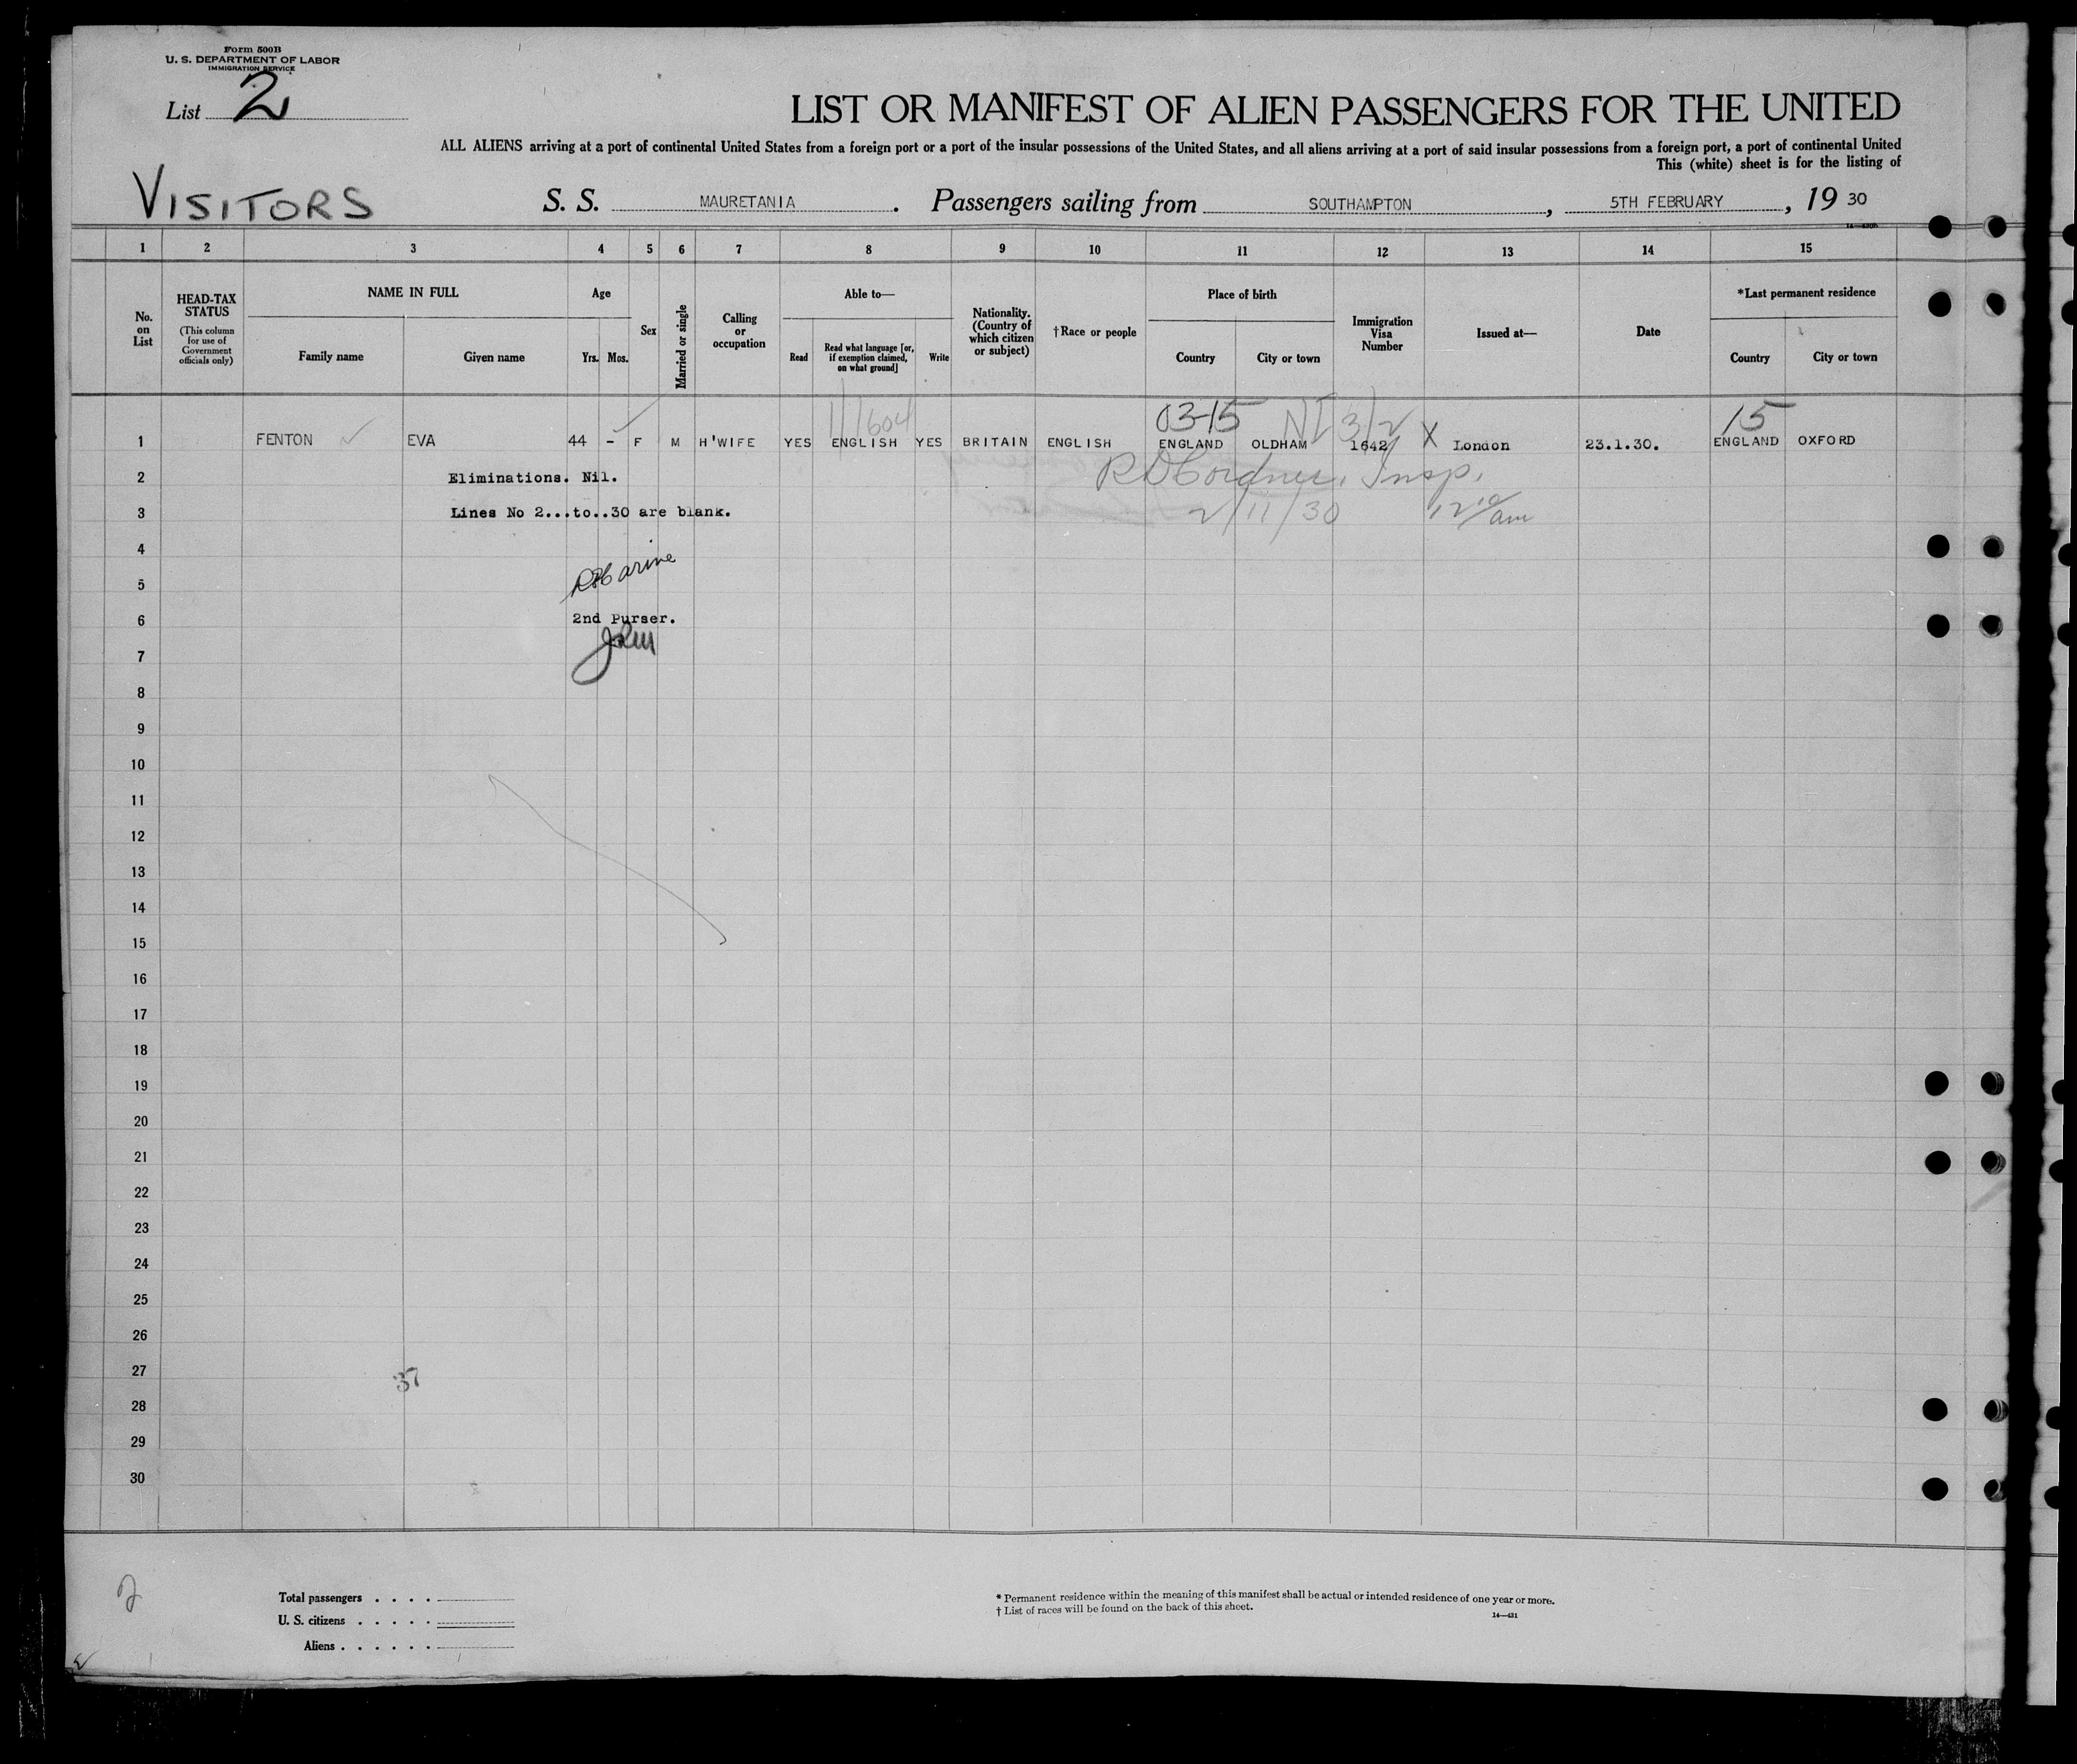 Form 500B
U. S. DEPARTMENT OF LABOR
IMMIGRATION SERVICE
List 2
LIST OR MANIFEST OF ALIEN PASSENGERS FOR THE UNITED
ALL ALIENS arriving at a port of continental United States from a foreign port or a port of the insular possessions of the United States, and all aliens arriving at a port of said insular possessions from a foreign port, a port of continental United
This (white) sheet is for the listing of
VISITORS S. S. MAURETANIA. Passengers sailing from SOUTHAMPTON, 5TH FEBRUARY, 19 30
1 2 3 4 5 6 7 8 9 10 11 12 13 14 15
No. on List
HEAD-TAX STATUS (This column for use of Government officials only)
NAME IN FULL
Family name Given name
Age
Yrs. Mos.
Sex
Married or single
Calling or occupation
Able to—
Read
Read what language [or, if exemption claimed, on what ground]
Write
Nationality. (Country of which citizen or subject)
†Race or people
Place of birth
Country City or town
Immigration Visa Number
Issued at—
Date
*Last permanent residence
Country City or town
03-15 15
1 FENTON EVA 44 - F M H'WIFE YES ENGLISH YES BRITAIN ENGLISH ENGLAND OLDHAM 1642 X London 23.1.30. ENGLAND OXFORD
2 Eliminations. Nil. Insp.
3 Lines No 2...to..30 are blank. 2/11/30 12 10 am
4
5
6 2nd Purser.
7
8
9
10
11
12
13
14
15
16
17
18
19
20
21
22
23
24
25
26
27 37
28
29
30
2
Total passengers . . . .
U. S. citizens . . . . .
Aliens . . . . . .
* Permanent residence within the meaning of this manifest shall be actual or intended residence of one year or more.
† List of races will be found on the back of this sheet.
14—431